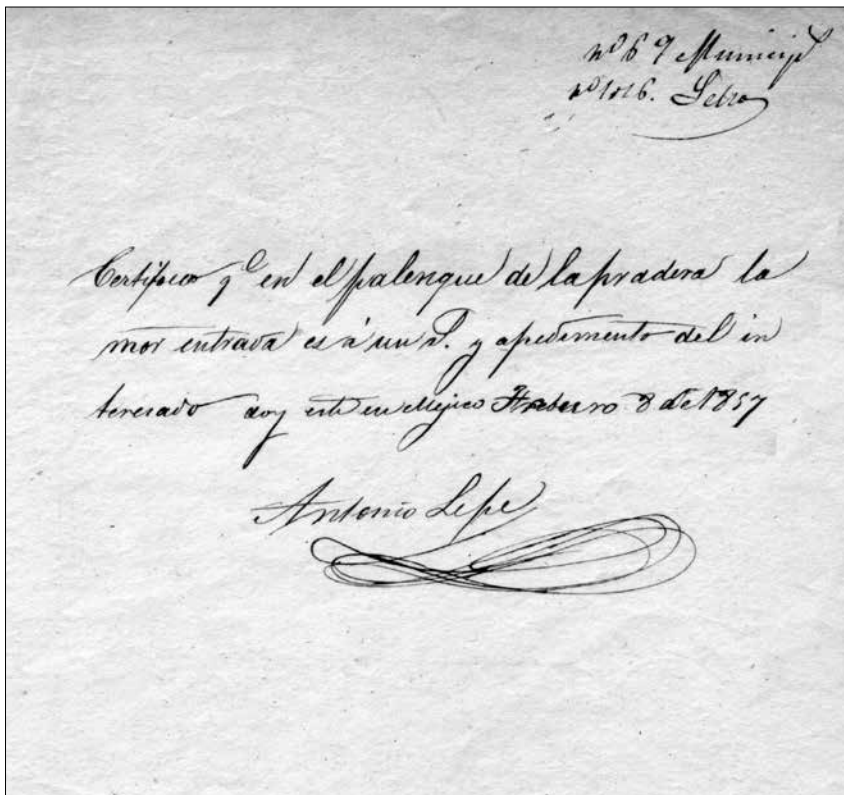 nº 69 Municipl
nº 1016. Letra
Certifico qe en el palenque de la pradera la
mor entrada es á un P. y apedimento del in
teresado doy este en Mejico Febrero 8 de 1857
Antonio Lepe